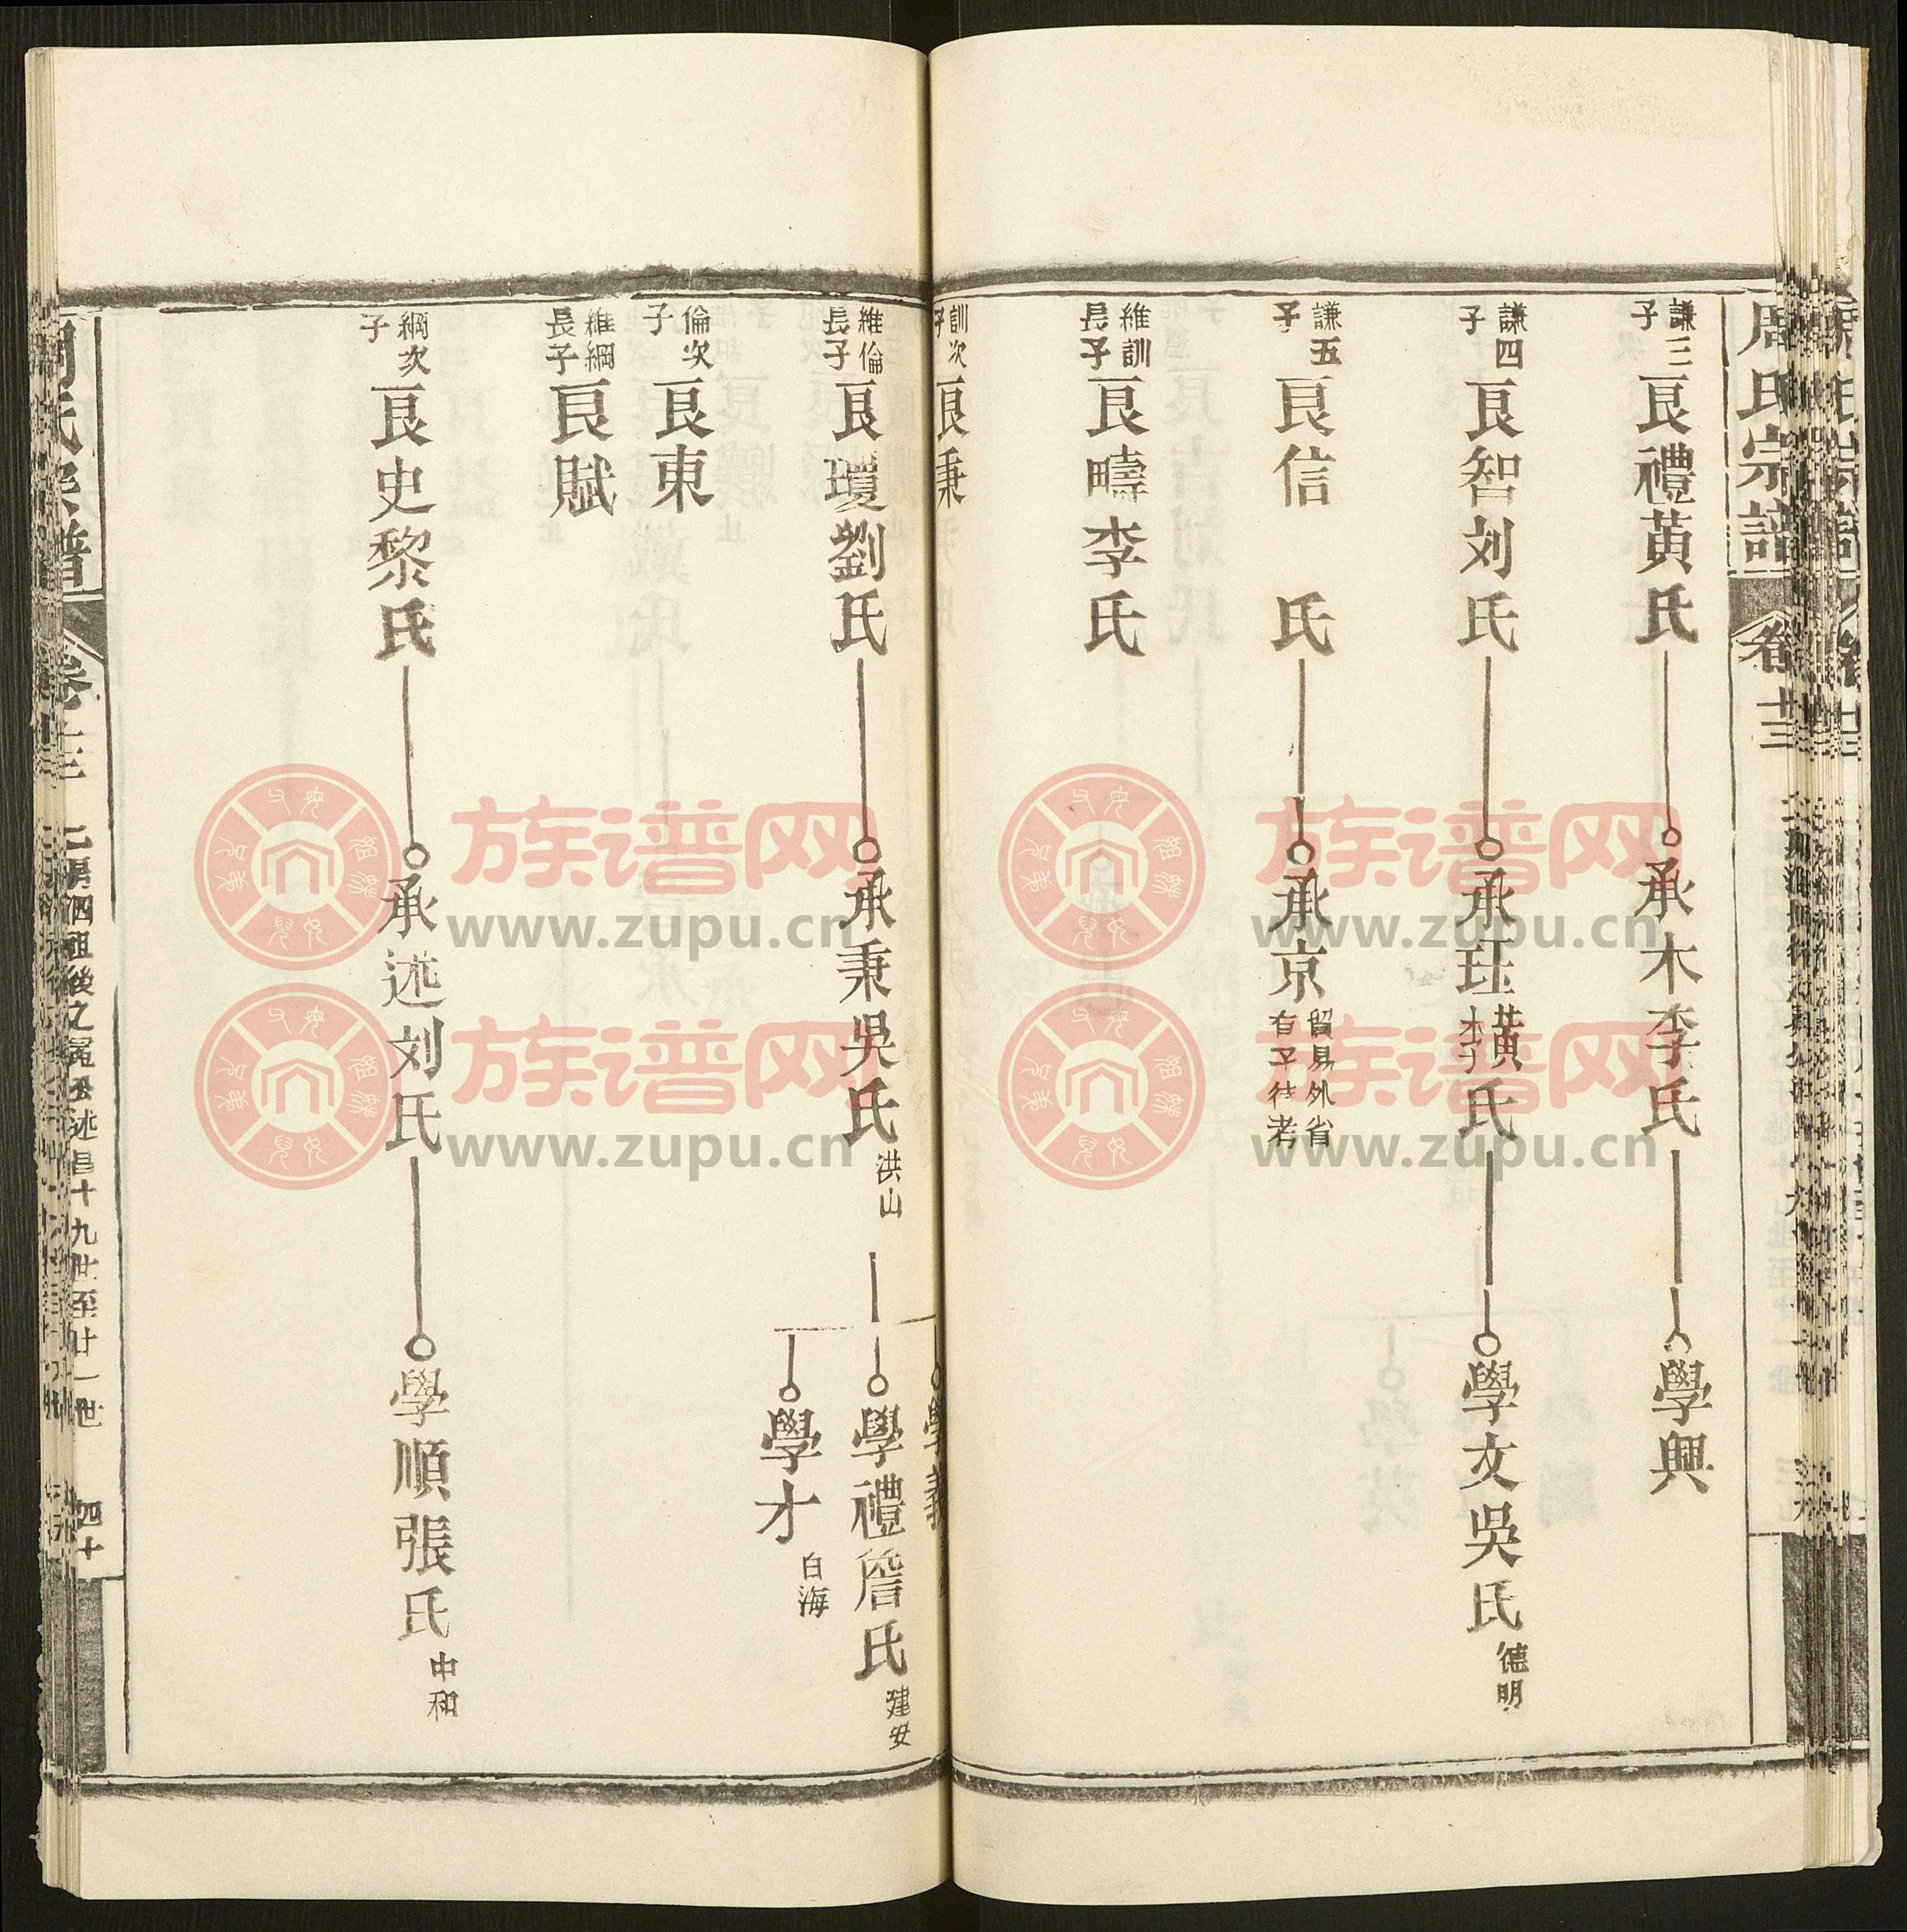 周氏宗譜
卷廿三
謙三子
良禮黃氏
承木李氏
學興
謙四子
良智刘氏
承珏橫李氏
學文吳氏
德明
謙五子
良信 氏
承京
貿易外省
有子待考
維訓長子
良疇李氏
訓次子
良秉
學義
維倫長子
良瓊劉氏
承秉吳氏
洪山
學禮詹氏
建安
學才
白海
倫次子
良東
維綱長子
良賦
綱次子
良史黎氏
承述刘氏
學順張氏
中和
周氏宗譜
卷廿三
述昌十九世至廿一世
四十
族谱网
www.zupu.cn
族谱网
www.zupu.cn
族谱网
www.zupu.cn
族谱网
www.zupu.cn